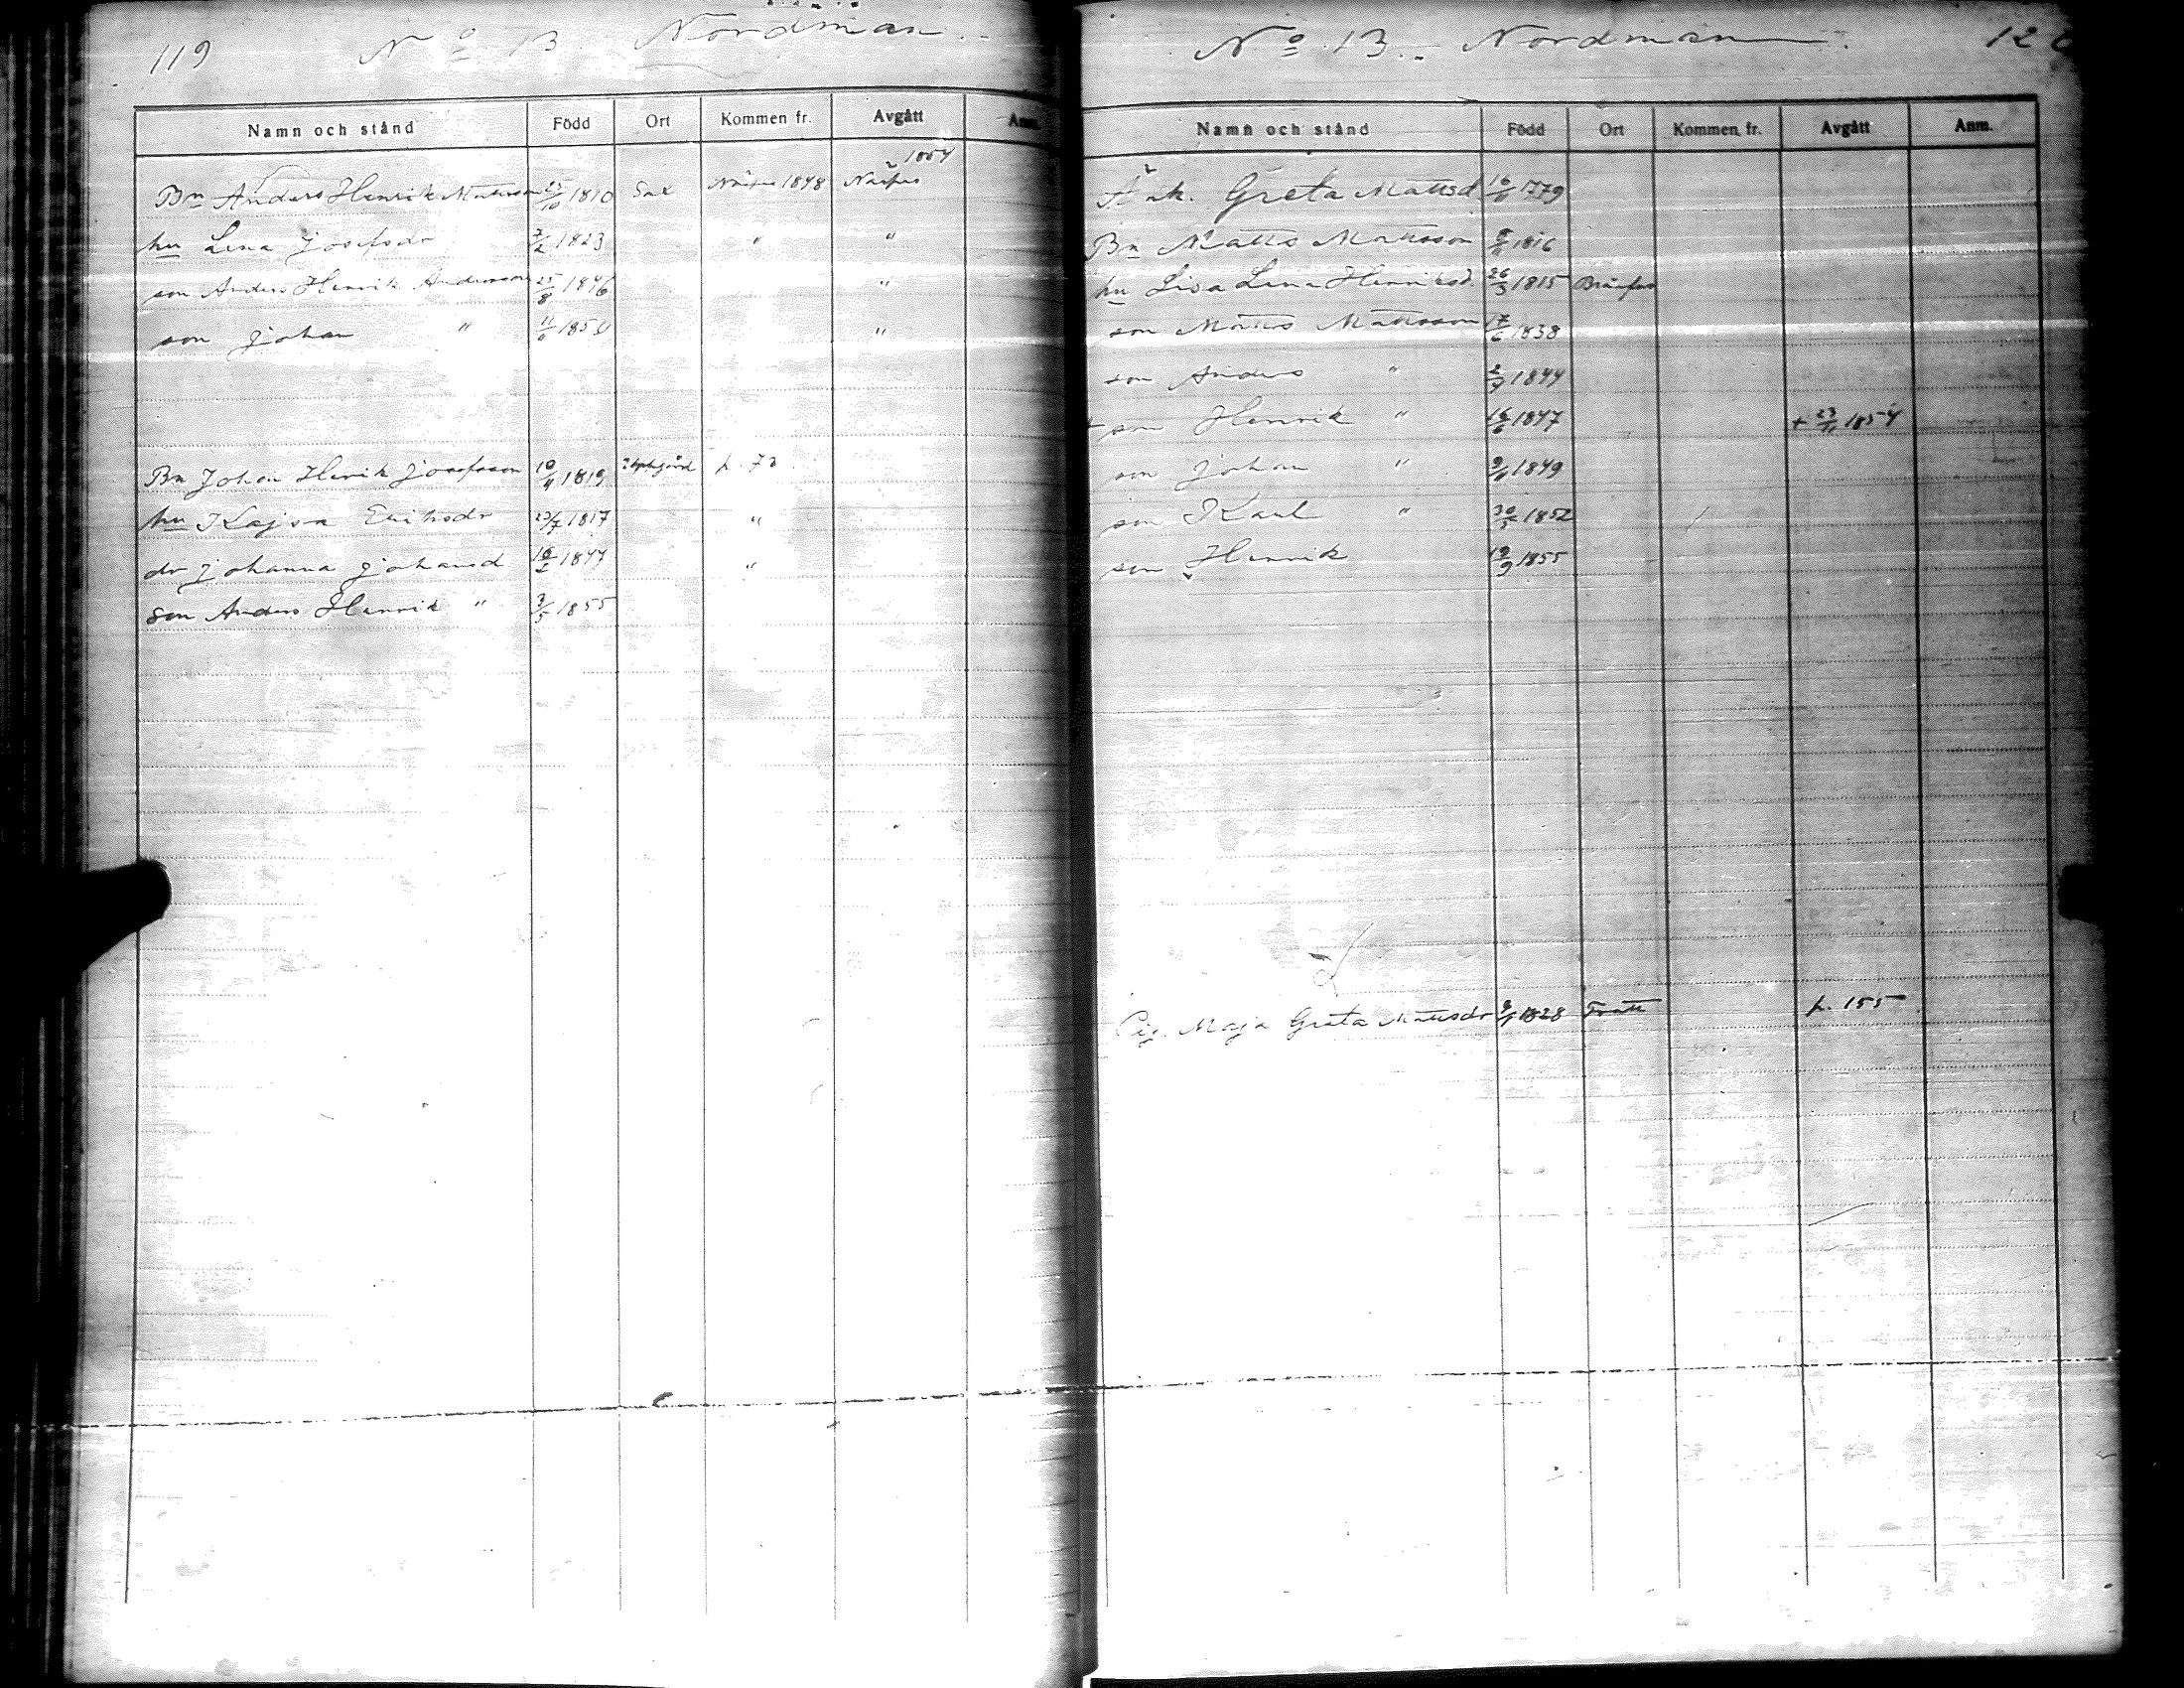 119 No 13 Nordman.
Namn och stånd Född Ort Kommen fr. Avgått Anm.
1854
Bn Anders Henrik Mattsson 25/10 1810 Sax Närpes 1848 Närpes
hu Lena Josefsdr 7/2 1823 " "
son Anders Henrik Andersson 25/8 1846 "
son Johan " 1850 "
Bn Johan Henrik Josefsson 10/4 1819 p. 73
hu Kajsa Eriksdr 23/7 1817 "
dr Johanna Johansd 1844 "
son Anders Henrik " 3/5 1855
No 13. Nordman. 120
Namn och stånd Född Ort Kommen fr. Avgått Anm.
Änk. Greta Mattsd 1779
Bn Matts Mattsson 1816
hu Lisa Lena Henriksd. 26/3 1815
son Matts Mattsson 17/6 1838
son Anders " 1844
+ son Henrik " 16/6 1847 + 23/11 1854
son Johan " 1849
son Karl " 30/5 1852
son Henrik 19/9 1855
Pig. Maja Greta Mattsdr 1828 Trätt p. 155